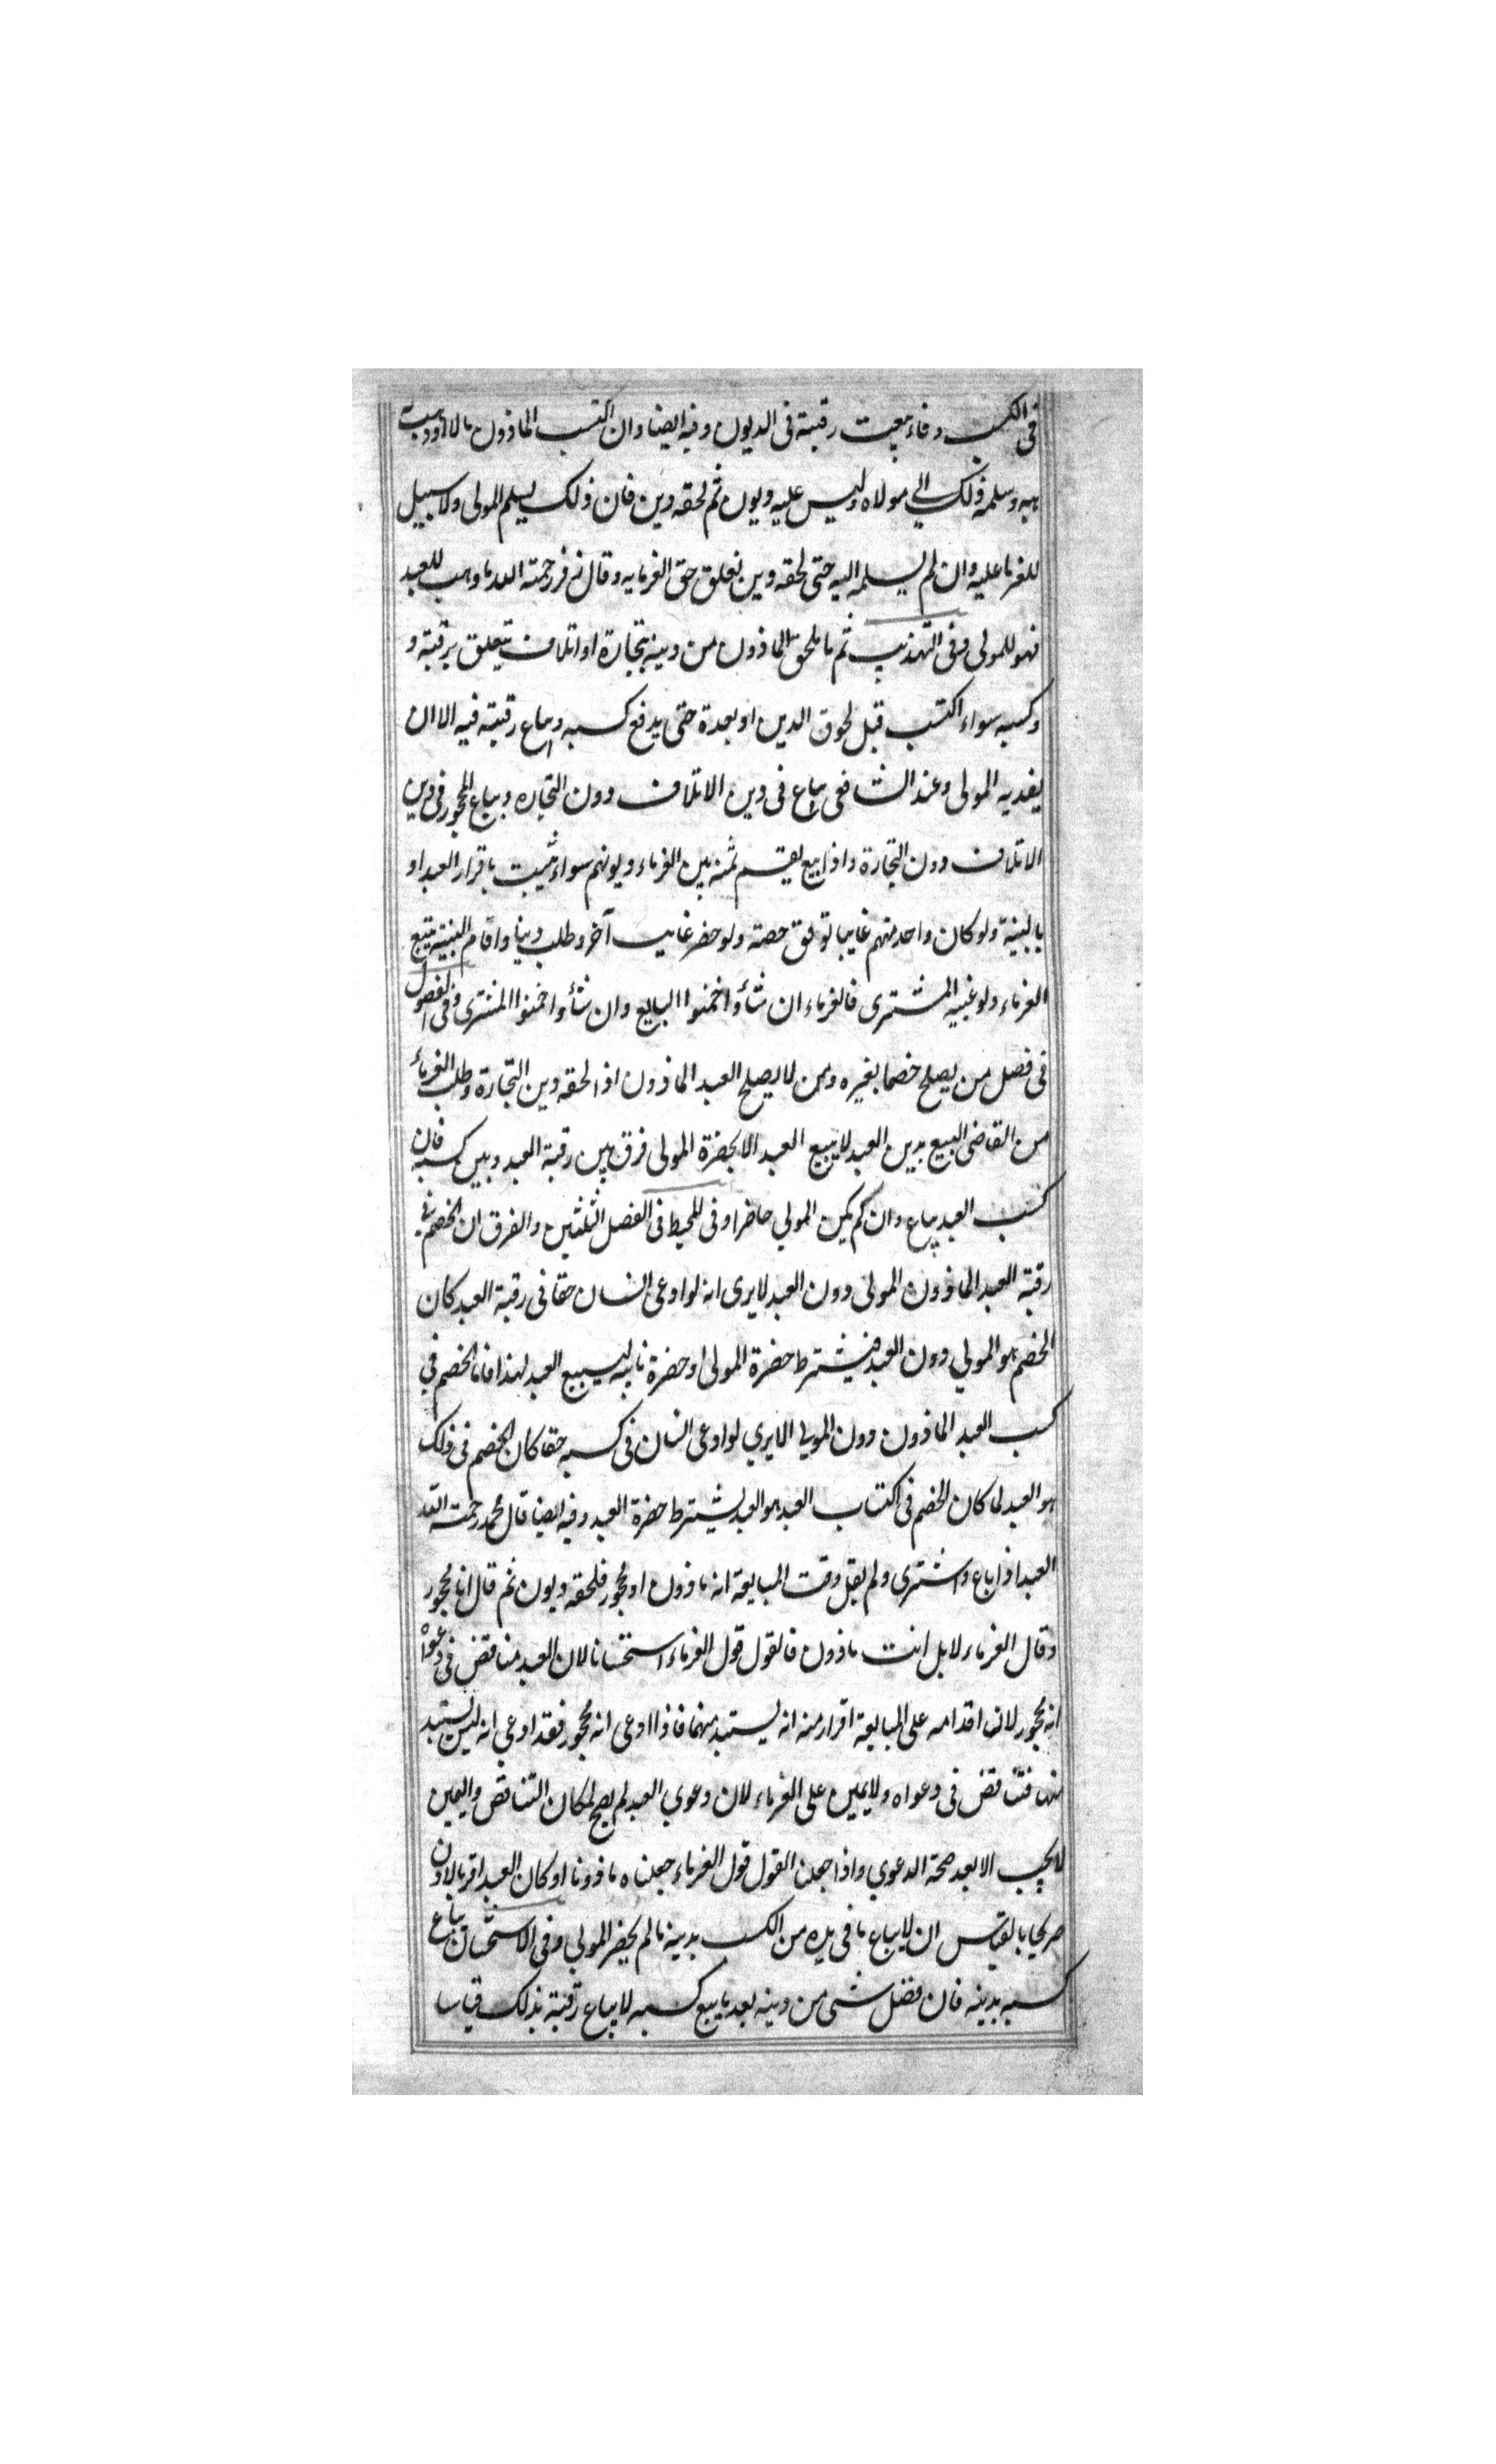 فى الكسب وفاء بيعت رقبته فى الديون وفيه ايضا وان اكتسب الماذون مالا او وهب له
هبه وسلمه ذلك الي مولاه وليس عليه ديون ثم لحقه دين فان ذلك يسلم المولى ولا سبيل
للغرما عليه وان لم يسلمه اليه حتى لحقه دين تعلق حق الغرما به وقال زفر رحمته الله ما وهب للعبد
فهو للمولى وفى التهذيب ثم ما يلحق الماذون من دينه بتجارة او اتلاف يتعلق برقبته و
وكسبه سواء اكتسب قبل لحوق الدين او بعدة حتى يدفع كسبه ويباع رقبته فيه الا ان
يفديه المولى وعند الشافعى يباع فى دين الاتلاف دون التجاره ويباع المحجور فى دين
الاتلاف دون التجارة واذا بيع يقسم ثمنه بين الغرماء ديونهم سواء ثبت باقرار العبد او
بالبينة ولو كان واحد منهم غايبا توقف حصته ولو حضر غايب آخر وطلب دينا واقام البينة يتبع
الغرماء ولو غيبه المشترى فالغرماء ان شأوا ضمنوا البايع وان شأوا ضمنوا المشترى وفى الفصول
فى فصل من يصلح خصما بغيره ومن لا يصلح العبد الماذون اذا لحقه دين التجارة وطلب الغرماء
من القاضى البيع بدين العبد لا يبيع العبد الا بحضرة المولى فرق بين رقبة العبد وبين كسبه فان
كسب العبد يباع وان لم يكن المولي حاضرا وفى المحيط فى الفصل الثلثين والفرق ان الخصم في
رقبة العبد الماذون المولى دون العبد لا يرى انه لو ادعى انسان حقا فى رقبة العبد كان
الخصم هو المولي دون العبد فيشترط حضرة المولى او حضرة نايبه ليبيع العبد لهذا فاما الخصم في
كسب العبد الماذون دون المولي الا يري لو ادعى انسان فى كسبه حقا كان الخصم فى ذلك
هو العبد لما كان الخصم فى اكتساب العبد هو العبد يشترط حضرة العبد وفيه ايضا قال محمد رحمته الله
العبد اذا باع واشترى ولم يقل وقت المبايعة انه ماذون او محجور فلحقه ديون ثم قال انا محجور
وقال الغرماء لا بل انت ماذون فالقول قول الغرماء استحسانا لان العبد مناقض فى دعواه
انه محجور لان اقدامه على المبايعة اقرار منه انه يستبد منهما فاذا ادعى انه محجور فقد ادعي انه ليس يستبد
منها فتناقض فى دعواه ولا يمين على الغرماء لان دعوي العبد لم يصح لمكان التناقض واليمين
لا يجب الا بعد صحة الدعوي واذا جعلنا القول قول الغرماء جعلناه ماذونا او كان العبد اقر بالاذن
صريحا بالقياس ان لا يباع ما فى يده من الكسب بدينه ما لم يحضر المولي وفى الاستحسان يباع
كسبه بدينه فان فضل شى من دينه بعد ما بيع كسبه لا يباع رقبته بذلك قياسا